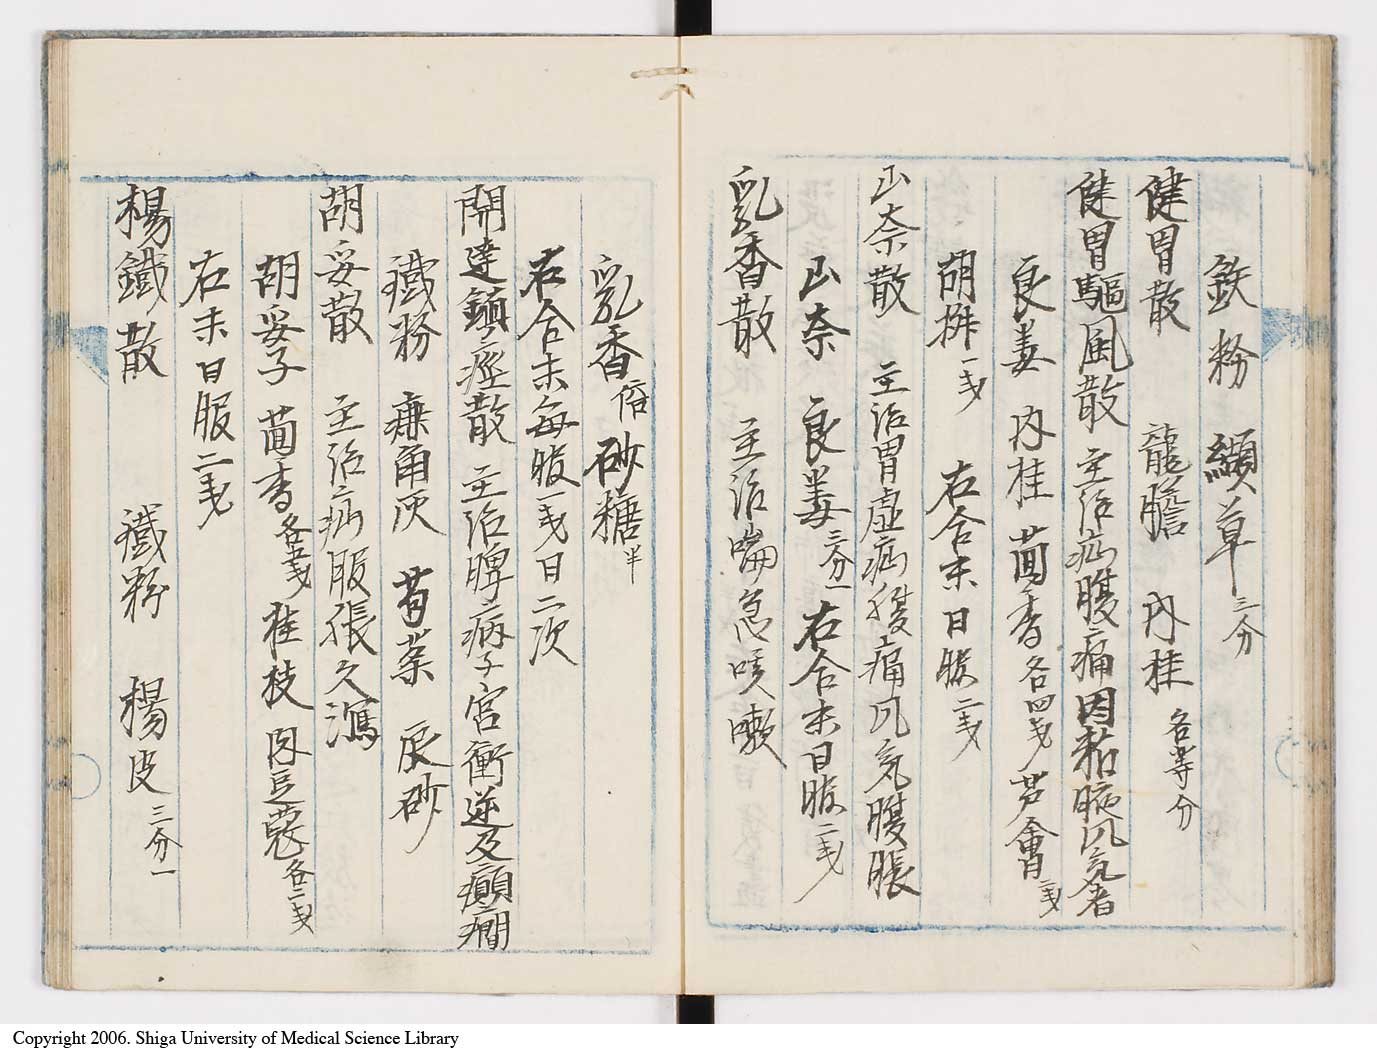 鉄粉 纈草 三分
健胃散 龍膽 内桂 各等分
健胃驅風散 主治疝腹痛因粘痰風気者
良姜 内桂 茴香 各四戔 芦會 一戔
胡椒 一戔 右合末日服二戔
山奈散 主治胃虚疝腹痛風気腹脹
山奈 良姜 三分一 右合末日服二戔
乳香散 主治喘急咳嗽
乳香 倍 砂糖 半
右合末毎服一戔日二次
開達鎮痙散 主治脾病子宮衝逆及癲癇
鐵粉 鹿角灰 莔薬 辰砂
胡妥散 主治疝服張久瀉
胡妥子 茴香 各五戔 桂枝 肉豆蔻 各二戔
右末日服二戔
楊鐵散 鐵粉 楊皮 三分一
Copyright 2006. Shiga University of Medical Science Library